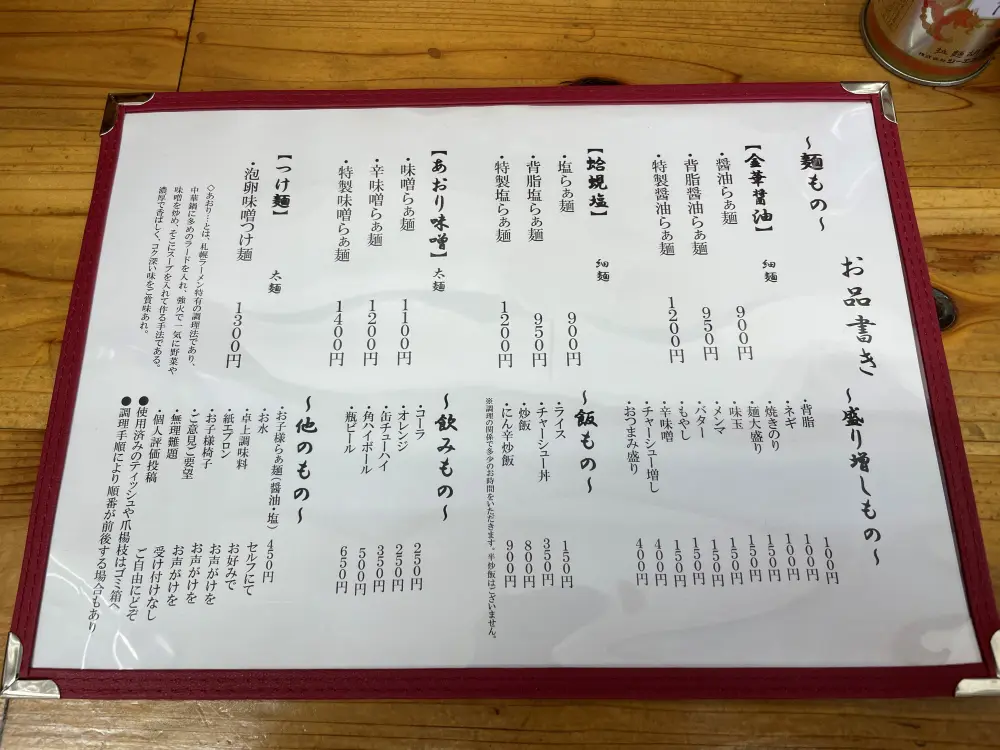 お品書き
～麺もの～
【金華醤油】 細麺
・醤油らぁ麺 900円
・背脂醤油らぁ麺 950円
・特製醤油らぁ麺 1200円
【蛤蜆塩】 細麺
・塩らぁ麺 900円
・背脂塩らぁ麺 950円
・特製塩らぁ麺 1200円
【あおり味噌】 太麺
・味噌らぁ麺 1100円
・辛味噌らぁ麺 1200円
・特製味噌らぁ麺 1400円
【つけ麺】 太麺
・泡卵味噌つけ麺 1300円
◇あおり…とは、札幌ラーメン特有の調理法であり、
中華鍋に多めのラードを入れ、強火で一気に野菜や
味噌を炒め、そこにスープを入れて作る手法である。
濃厚で香ばしく、コク深い味をご賞味あれ。
～盛り増しもの～
・背脂 100円
・ネギ 100円
・焼きのり 150円
・麺大盛り 150円
・味玉 150円
・メンマ 150円
・バター 150円
・もやし 150円
・辛味噌 150円
・チャーシュー増し 400円
・おつまみ盛り 400円
～飯もの～
・ライス 150円
・チャーシュー丼 350円
・炒飯 800円
・にん辛炒飯 900円
※調理の関係で多少のお時間をいただきます。半炒飯はございません。
～飲みもの～
・コーラ 250円
・オレンジ 250円
・缶チューハイ 350円
・角ハイボール 500円
・瓶ビール 650円
～他のもの～
・お子様らぁ麺(醤油・塩) 450円
・お水 セルフにて
・卓上調味料 お好みで
・紙エプロン お声がけを
・お子様椅子 お声がけを
・ご意見ご要望 お声がけを
・無理難題 受け付けなし
・個人評価投稿 ご自由にどぞ
●使用済みのティッシュや爪楊枝はゴミ箱へ
●調理手順により順番が前後する場合もあり